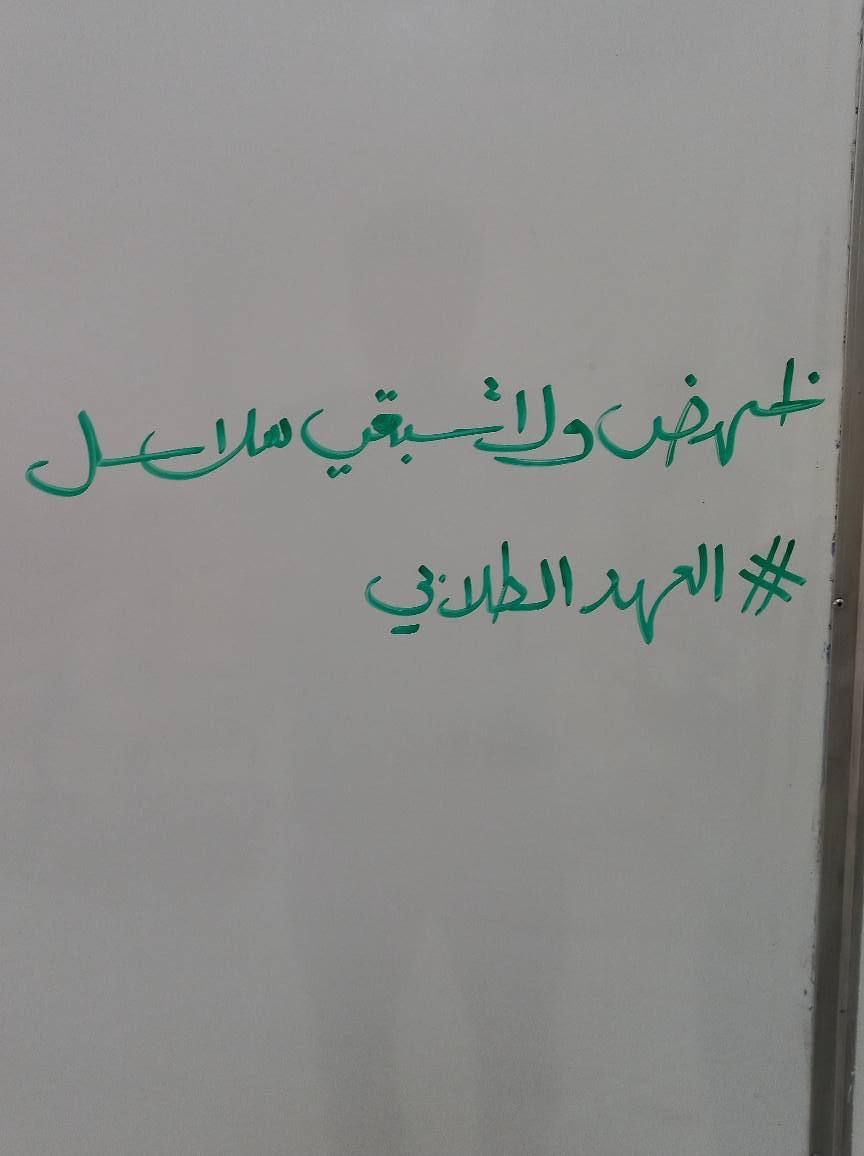 ظهرض ولا تسبقي سلاسل
#العهد الطلابي